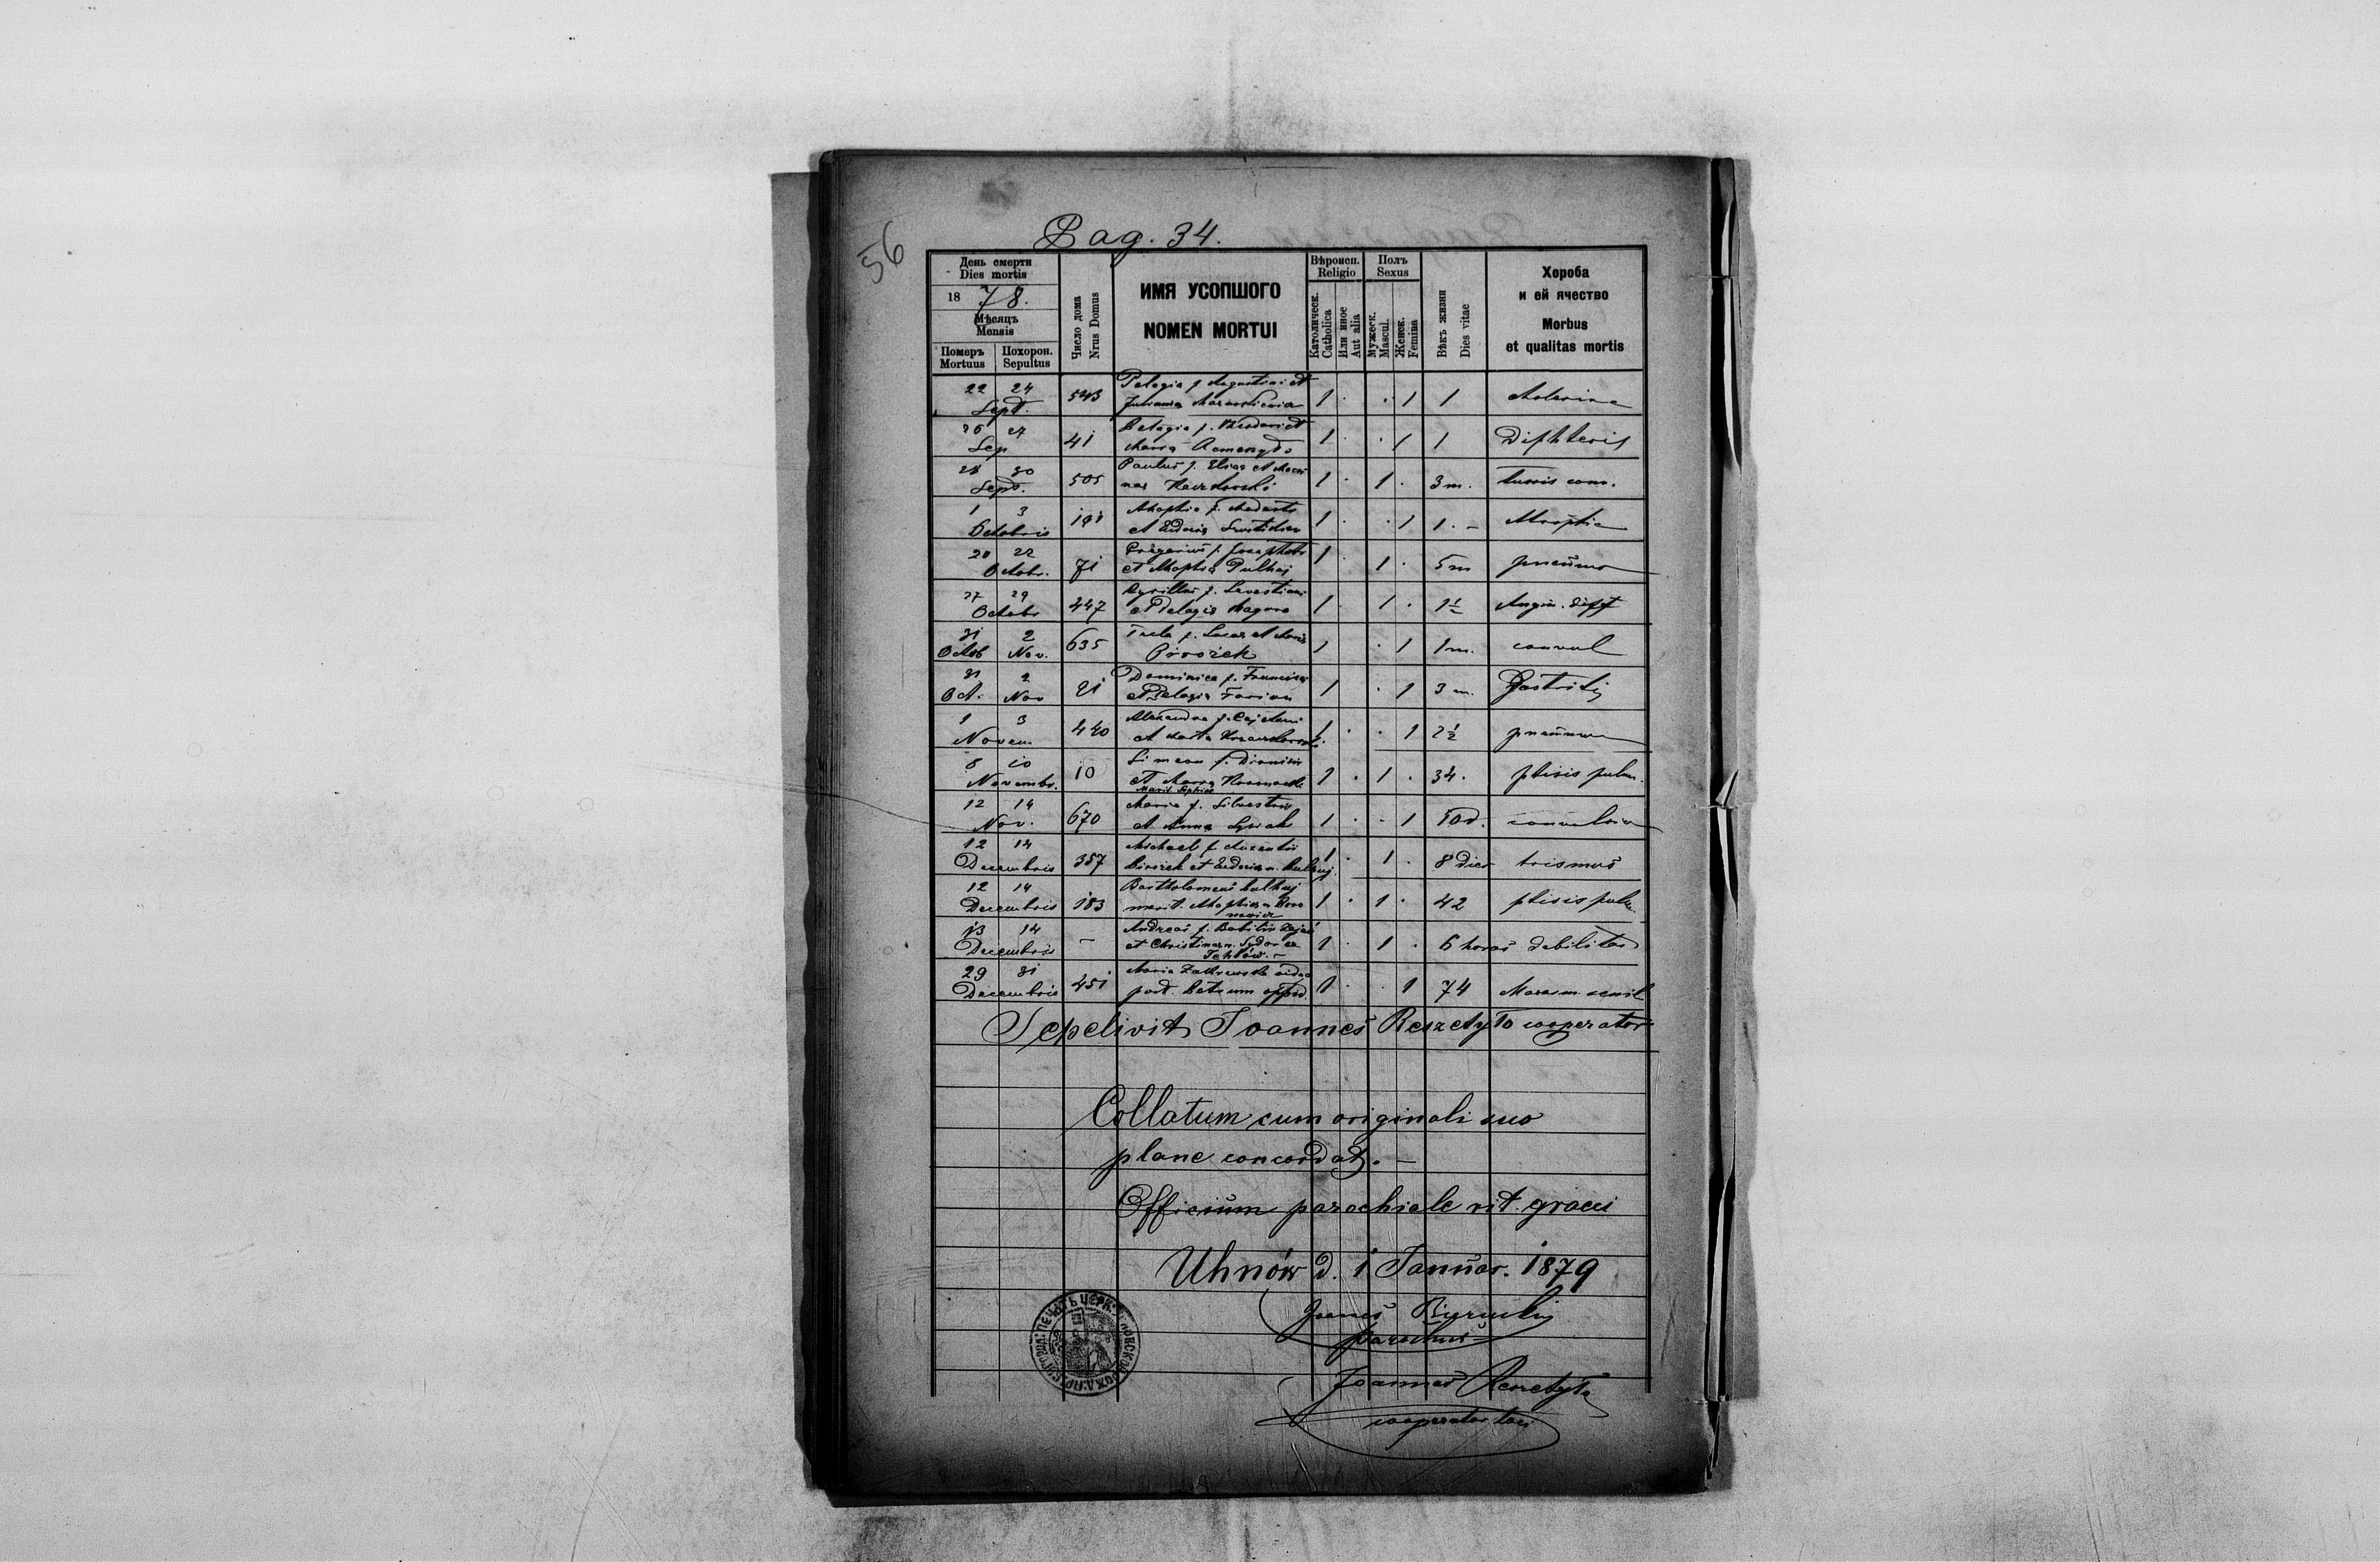 56
Pag. 34.
День смерти
Dies mortis
18 78.
Мѣсяцъ
Mensis
Померъ Mortuus
Похорон. Sepultus
Число дома
Nrus Domus
ИМЯ УСОПШОГО
NOMEN MORTUI
Вѣроисп.
Religio
Католическ.
Catholica
Или иное
Aut alia
Полъ
Sexus
Мужеск.
Mascul.
Женск.
Femina
Вѣкъ жизни
Dies vitae
Хороба
и ей ячество
Morbus
et qualitas mortis
22 24 Sept. 543 Pelagia f. Augustini et
Juliania 1 . . 1 1
26 27 Sep 41 Pelagia f. et
Maria 1 . . 1 1 Diphteris
28 30 Sept. 505 Paulus f. Eliae et
1 . 1 . 3 m. tussis conv.
1 3 Octobris 191
et Eudocia 1 . . 1 1. - Atrophia
20 22 Octobr. 71 Gregorius f. Josaphati
et Pulhuj 1 . 1 . 5 m pneumo
27 29 Octobr 447 Cyrillus f.
et Pelagia 1 . 1 . 1½ Angin. diff
31 Octob 2 Nov. 635 Tecla f. Lucas et Maria
Pirożek 1 . 1 1 m. convul
31 Oct. 2 Nov 21 Dominica f. Francisci
et Pelagia Farion 1 . 1 3 m. Gastritis
1 3 Novem 440 Alexandra f. Cajetani
et 1 . . 1 2½ pneumo
8 10 Novembr. 10 Simeon f. Dionisii
et Maria
Marit Sophiae 1 . 1 . 34. ptisis pulm.
12 14 Nov. 670 Maria f. Silvestri
et Anna 1 . . 1 10 d.
12 14 Decembris 357 Michael f. Auxentii
Pirożek et Eudocia n. Pulhuj 1 . 1 . 8 dies trismus
12 14 Decembris 183 Bartholomeus Pulhuj
marit. 1 . 1 . 42 ptisis pulm.
13 14 Decembris - Andreas f. Zając
et Christina n. Sydor ex
Tehlów. - 1 . 1 . 6 horas debilitas
29 31 Decembris 451 Maria vidua
post. Petrum 1 . . 1 74 Marasm. senil
Sepelivit Joannes Reszetyło cooperator
Collatum cum originali suo
plane concordat. -
Officium parochiale rit. graeci
Uhnów d. 1 Januar. 1879
parochus
Joannes Reszetyło
cooperator loci